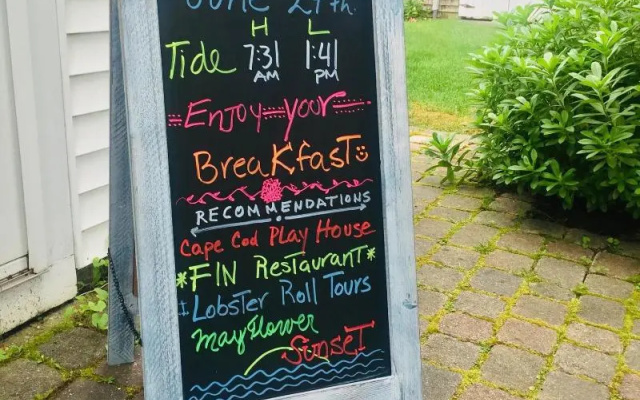 June 29th
H L
Tide 7:31 1:41
AM PM
Enjoy your
Breakfast
RECOMMENDATIONS
Cape Cod Play House
*FIN Restaurant*
Lobster Roll Tours
Mayflower
Sunset